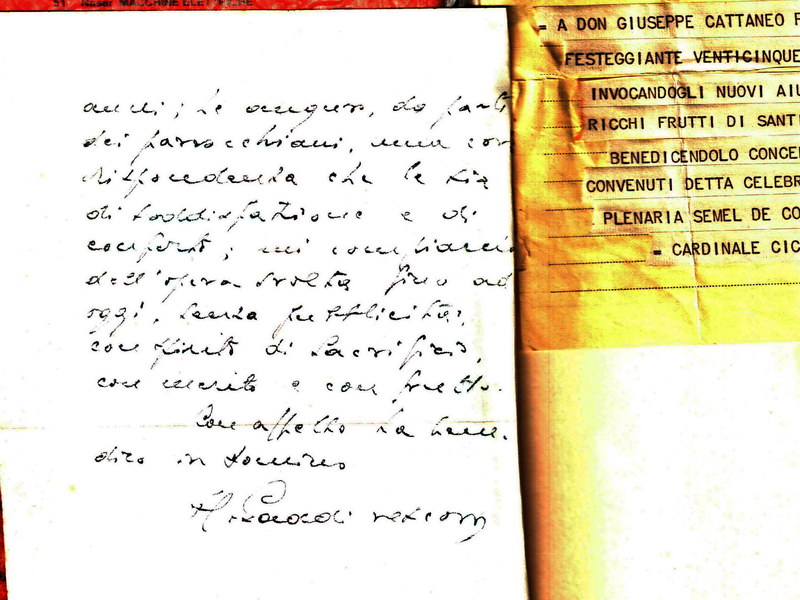 51 Naser MACCHINE ELETTRICHE
anni; Le auguro, da parte
dei parrocchiani, una cor
rispondenza che le sia
di soddisfazione e di
conforto; mi compiaccio
dell'opera svolta fino ad
oggi, senza pubblicità,
con spirito di sacrificio,
con merito e con frutto.
Con affetto La bene.
dico in Domino
vescovo
= A DON GIUSEPPE CATTANEO P
FESTEGGIANTE VENTICINQUE
INVOCANDOGLI NUOVI AIU
RICCHI FRUTTI DI SANTI
BENEDICENDOLO CONCE
CONVENUTI DETTA CELEBR
PLENARIA SEMEL DE CO
= CARDINALE CIC